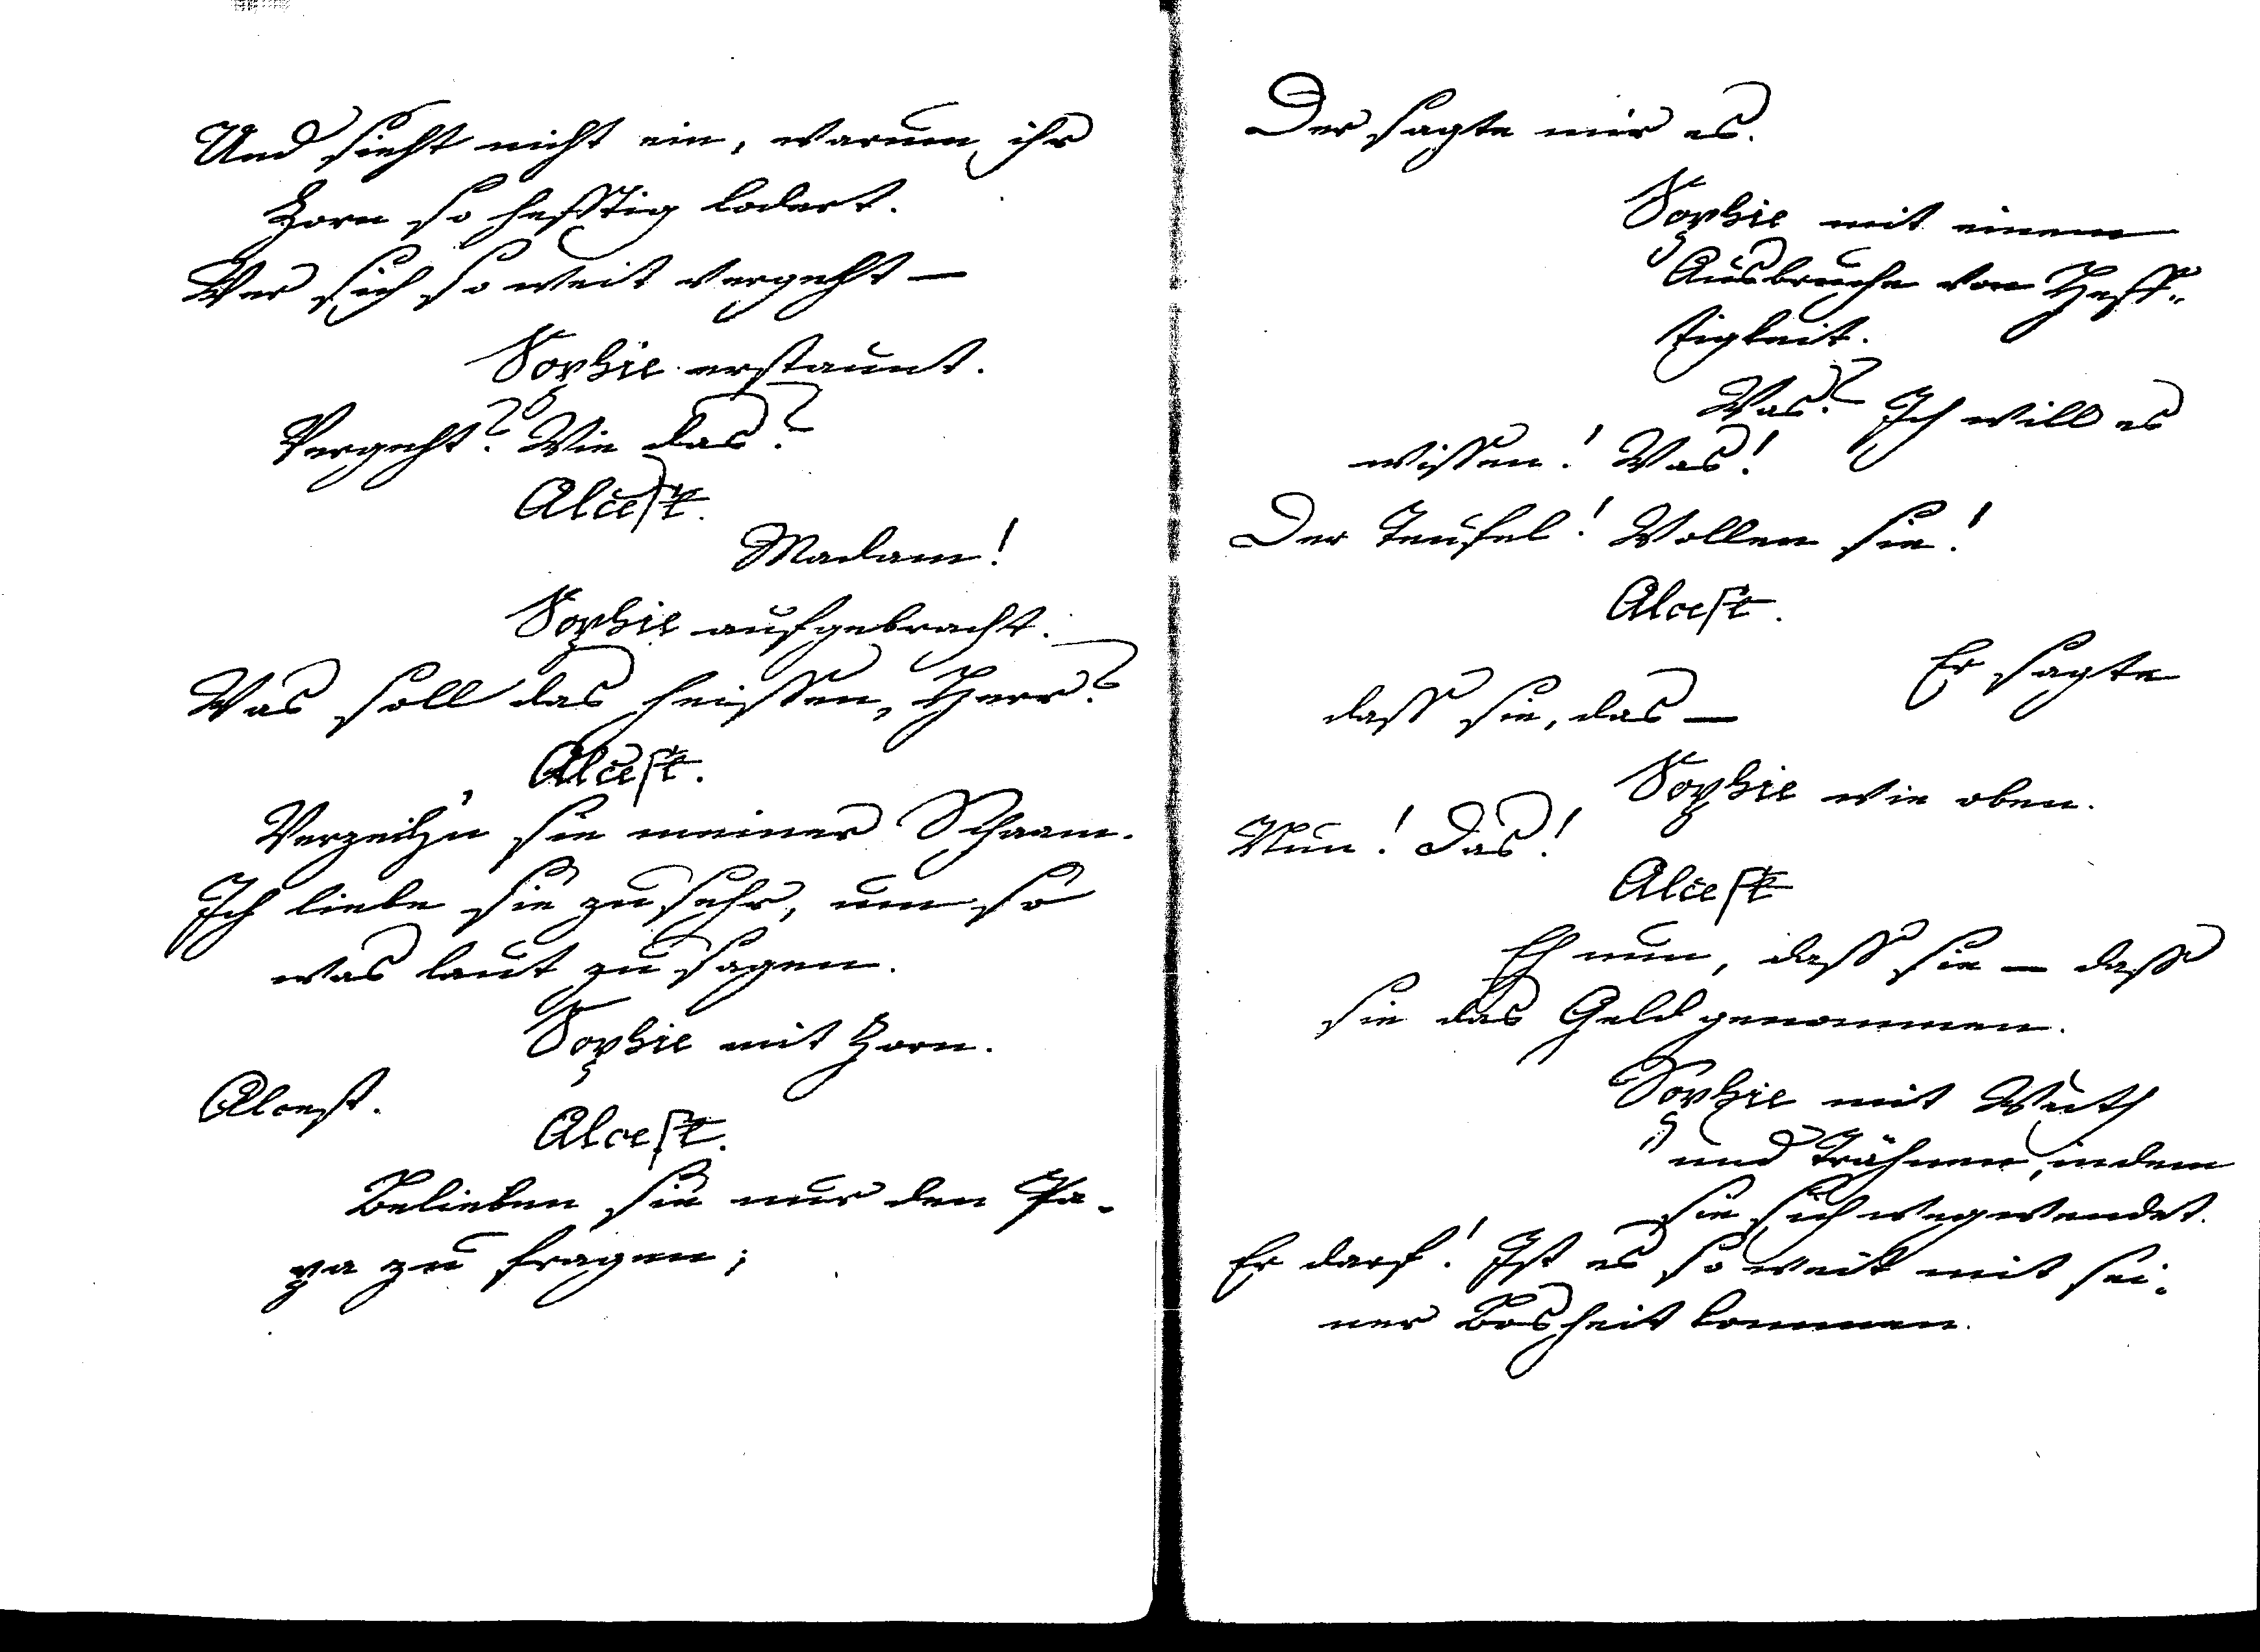 Und sieht nicht ein, warum ihr
Zorn so hefftig lodert.
Wer sich so weit vergeht —
Sophie erstaunt.
Vergeht? Wie das?
Alcest.
Madam!
Sophie aufgebracht.
Was soll das heissen, Herr?
Alcest.
Verzeih'n sie meiner Schaam.
Ich liebe sie zu sehr, um so
was laut zu sagen.
Sophie mit Zorn.
Alcest.
Alcest.
Belieben sie nur den Pa-
pa zu fragen;
Der sagte mir es.
Sophie mit einem
Ausbruche von Heff-
tigkeit.
Was? Ich will es
wissen! Was!
Der Teufel! Wollen sie!
Alcest.
Er sagte
dass sie, das —
Sophie wie oben.
Nun! Das!
Alcest
Eh nun, dass sie — dass
sie das Geld genommen.
Sophie mit Wuth
und Trähnen, indem
sie sich wegwendet.
Er darf! Ist es so weit mit sei-
ner Bosheit kommen.